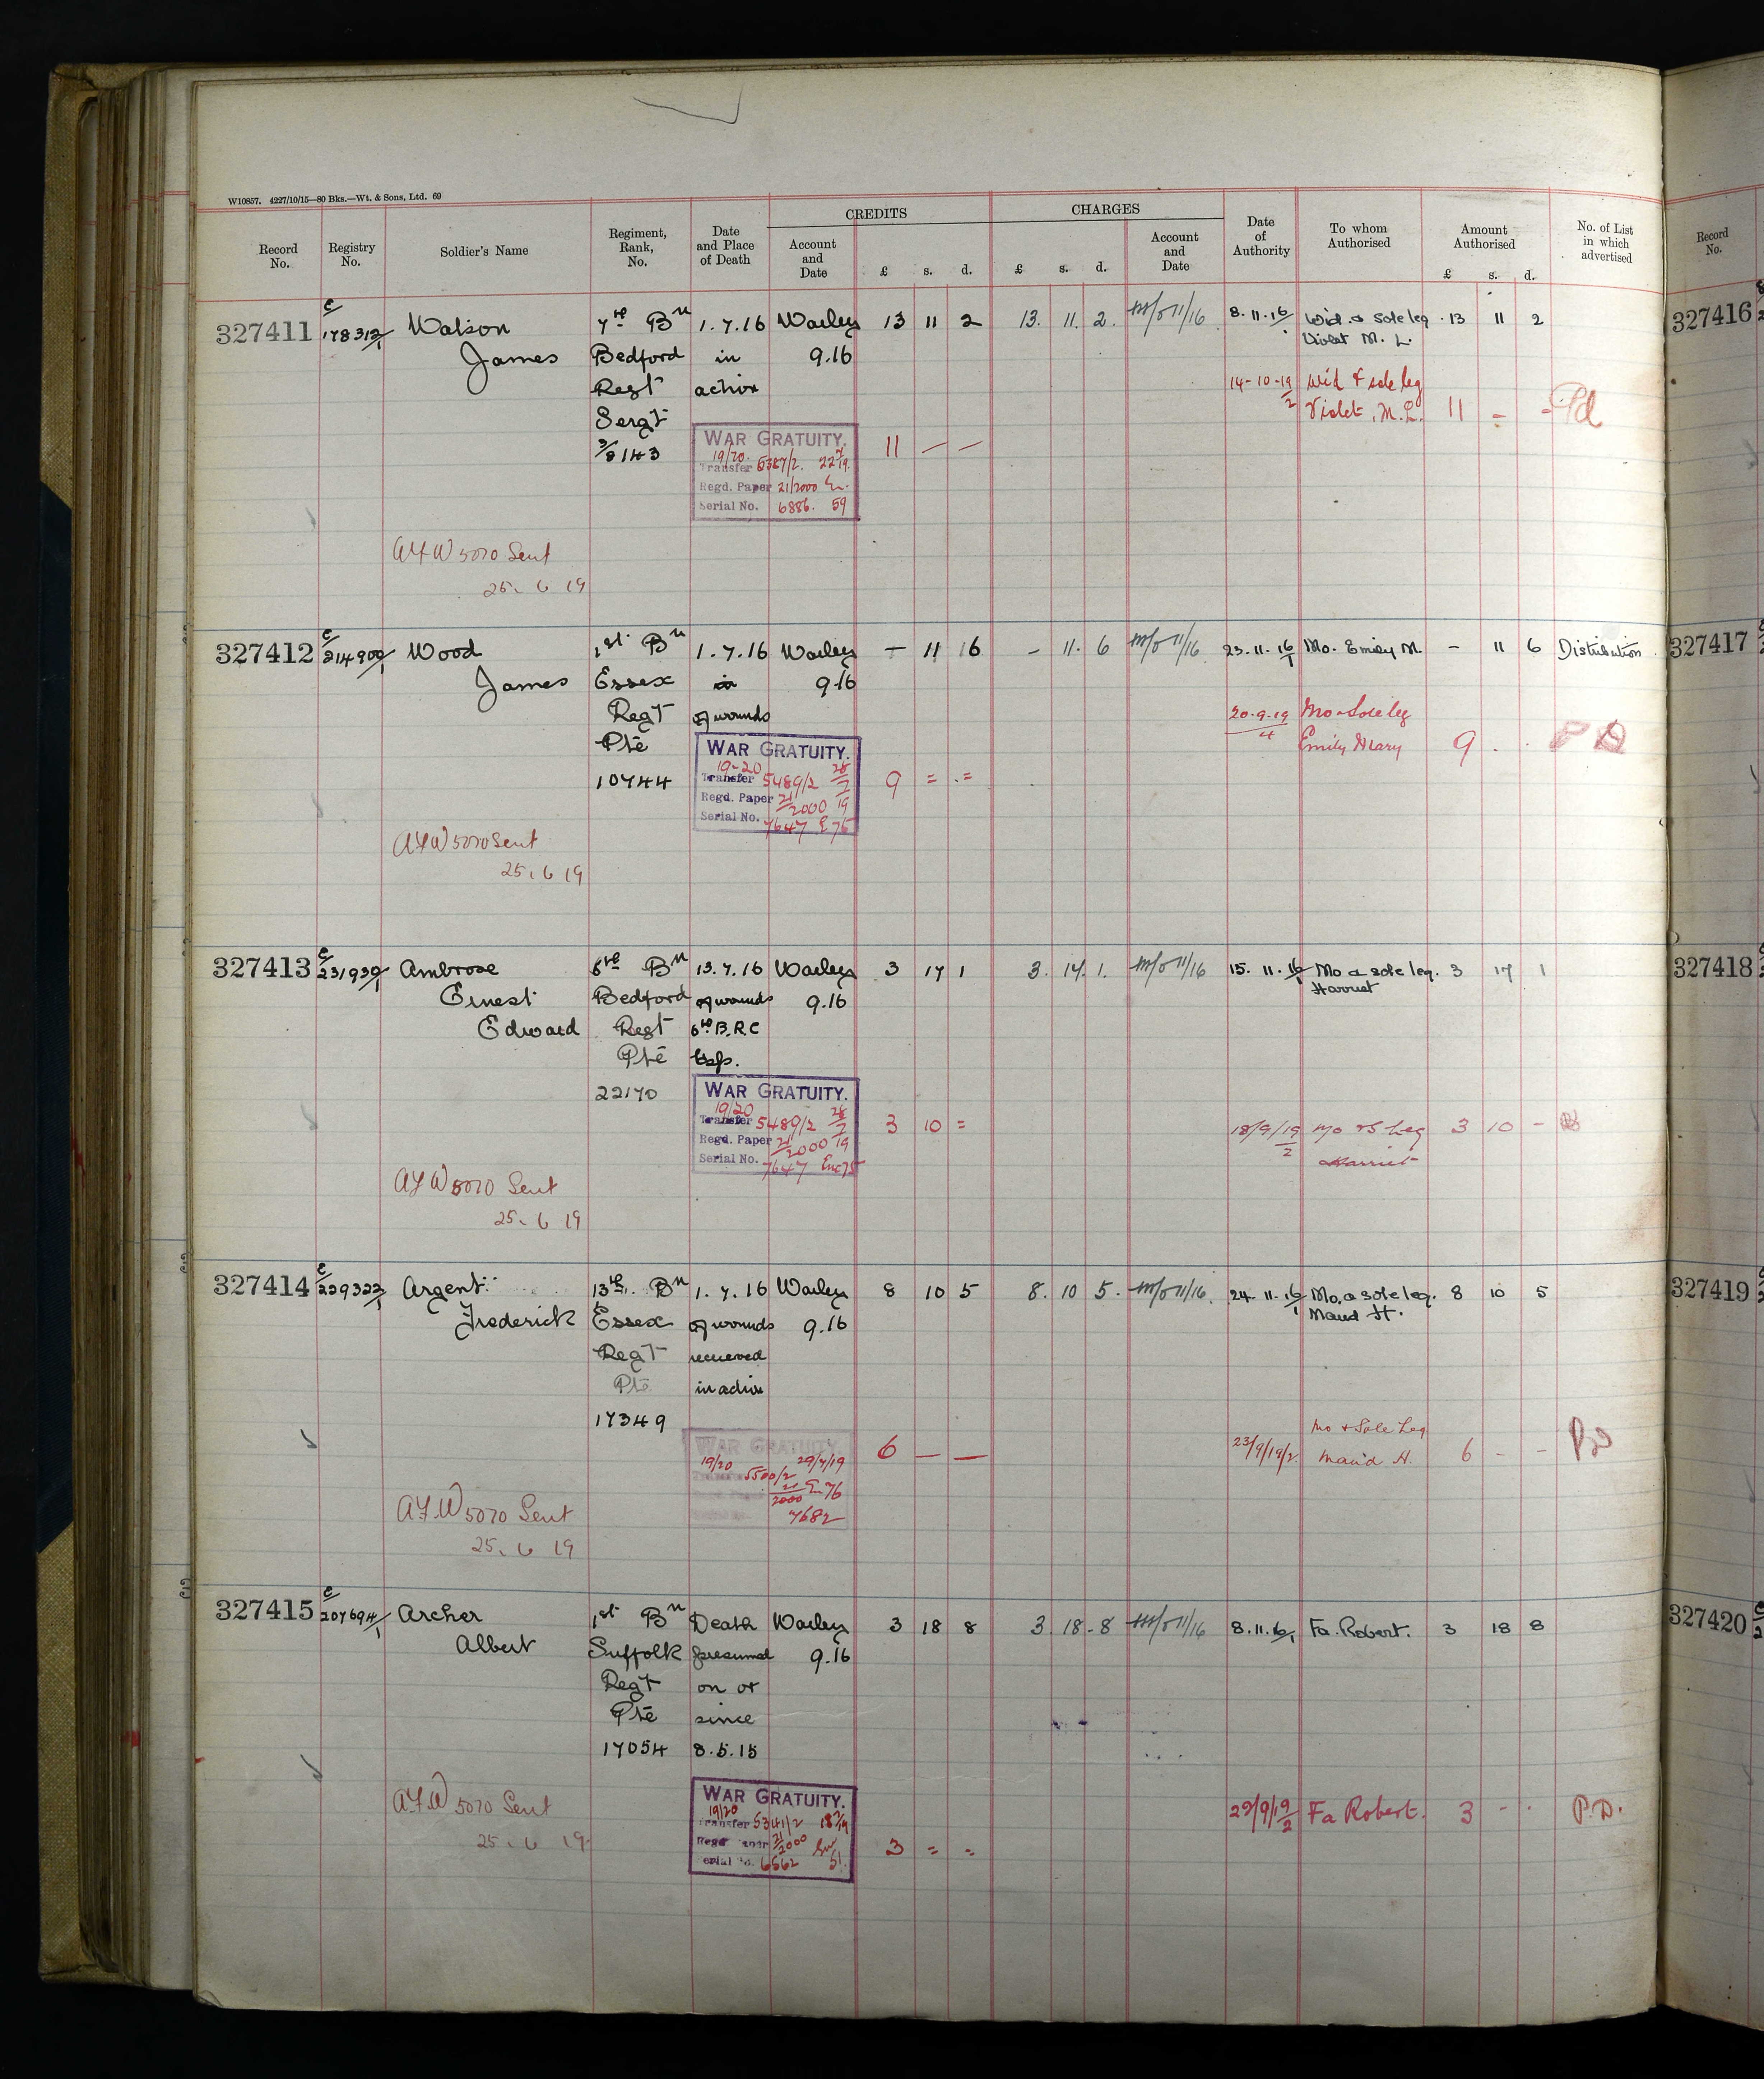 W10857. 4227/10/15—80 Bks.—Wt. & Sons, Ltd. 69
Record No. Registry No. Soldier's Name Regiment, Rank, No. Date and Place of Death CREDITS Account and Date £ s. d. CHARGES £ s. d. Account and Date Date of Authority To whom Authorised Amount Authorised £ s. d. No. of List in which advertised Record No.
327411 E/178312/1 Watson 7th Bn 1.7.16 Warley 13 11 2 13. 11. 2. 11/16 8.11.16/1 Wid. & sole leg. 13 11 2 327416
James Bedford in 9.16 Violet M. L.
Regt action 14-10-19/2 Wid & sole leg
Sergt Violet. M. L. 11 = = Pd
3/8143 WAR GRATUITY. 11 — —
19/20
Transfer 5387/2. 22/7/19.
Regd. Paper 21/2000
Serial No. 6886. 59
AFW 5070 Sent
25. 6 19
327412 E/214900/1 Wood 1st Bn 1.7.16 Warley — 11 16 - 11. 6 11/16 23.11.16/1 Mo. Emily M. - 11 6 Distribution 327417
James Essex in 9.16
Regt of wounds 20.9.19/4 Mo & Sole leg
Pte Emily Mary 9 . . PD
10744 WAR GRATUITY. 9 = =
19-20
Transfer 5489/2 28/7/19
Regd. Paper 21/2000
Serial No. 7647 E 75
AFW 5070 Sent
25. 6 19
327413 E/231939/1 Ambrose 6th Bn 13.7.16 Warley 3 17 1 3. 17. 1. 11/16 15. 11. 16/1 Mo & sole leg. 3 17 1 327418
Ernest Bedford of wounds 9.16 Harriet
Edward Regt 6th B.R.C
Pte Hosp.
22170 WAR GRATUITY. 3 10 = 18/9/19/2 Mo & S Leg 3 10 -
19/20 Harriet
Transfer 5489/2 28/7/19
Regd. Paper 21/2000
Serial No. 7647 Enc 75
AFW 5070 Sent
25. 6 19
327414 E/229322/1 Argent 13th Bn 1.7.16 Warley 8 10 5 8. 10 5. 11/16. 24. 11. 16/1 Mo. & sole leg. 8 10 5 327419
Frederick Essex of wounds 9.16 Maud H.
Regt received
Pte in action
17349 Mo & Sole Leg
WAR GRATUITY. 6 — — 23/9/19/2. Maud H. 6 - - PD
19/20 29/7/19
5500/2
21/2000 E 76
7682
AFW 5070 Sent
25. 6 19
327415 E/207694/1 Archer 1st Bn Death Warley 3 18 8 3. 18. 8 11/16 8.11.16/1 Fa. Robert. 3 18 8 327420
Albert Suffolk presumed 9.16
Regt on or
Pte since
17054 8.5.15
AFW 5070 Sent WAR GRATUITY. 29/9/19/2 Fa Robert. 3 - . P.D.
25. 6 19 19/20
Transfer 5341/2 18/7/19
Regd Paper 21/2000 3 = =
Serial No. 6562 51.